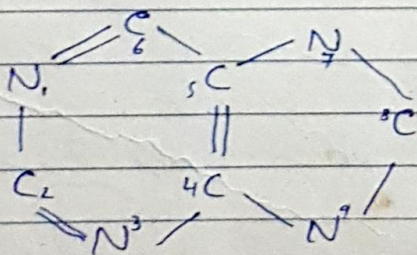 C6
N1 5C N7
8C
C2 4C
N3 N9